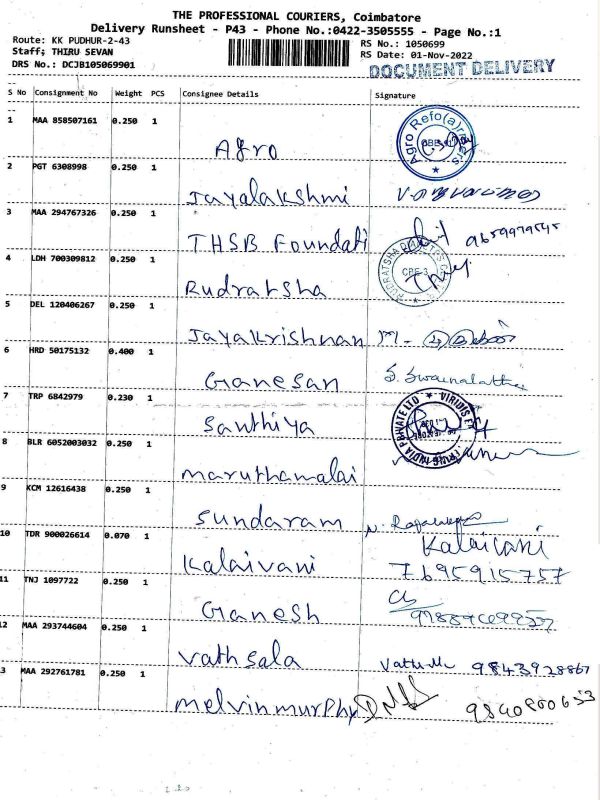 THE PROFESSIONAL COURIERS, Coimbatore
Delivery Runsheet - P43 - Phone No.:0422-3505555 - Page No.:1
Route: KK PUDHUR-2-43
RS No.: 1050699
Staff; THIRU SEVAN
RS Date: 01-Nov-2022
DRS No.: DCJB105069901
DOCUMENT DELIVERY
S No Consignment No Weight PCS Consignee Details Signature
1 MAA 858507161 0.250 1 Agro
Agro Refo(a)r
2 PGT 6308998 0.250 1 Jayalakshmi
3 MAA 294767326 0.250 1 THSB Foundati 9659979545
4 LDH 700309812 0.250 1 Rudratsha
CBE-3
5 DEL 120406267 0.250 1 Jayakrishnan
6 HRD 50175132 0.400 1 Ganesan S. Swarnalatha
7 TRP 6842979 0.230 1 Santhiya
VIRIDIS INDIA PRIVATE LTD
8 BLR 6052003032 0.250 1 maruthamalai
9 KCM 12616438 0.250 1 Sundaram
10 TDR 900026614 0.070 1 Kalaivani Kalaivani
7695915757
11 TNJ 1097722 0.250 1 Ganesh
12 MAA 293744604 0.250 1 Vathsala 9843928867
3 MAA 292761781 0.250 1 melvinmurphy 9840800653